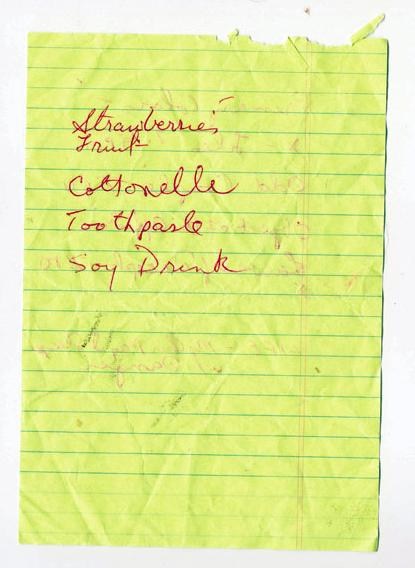 Strawberries
Fruit
Cottonelle
Toothpaste
Soy Drink